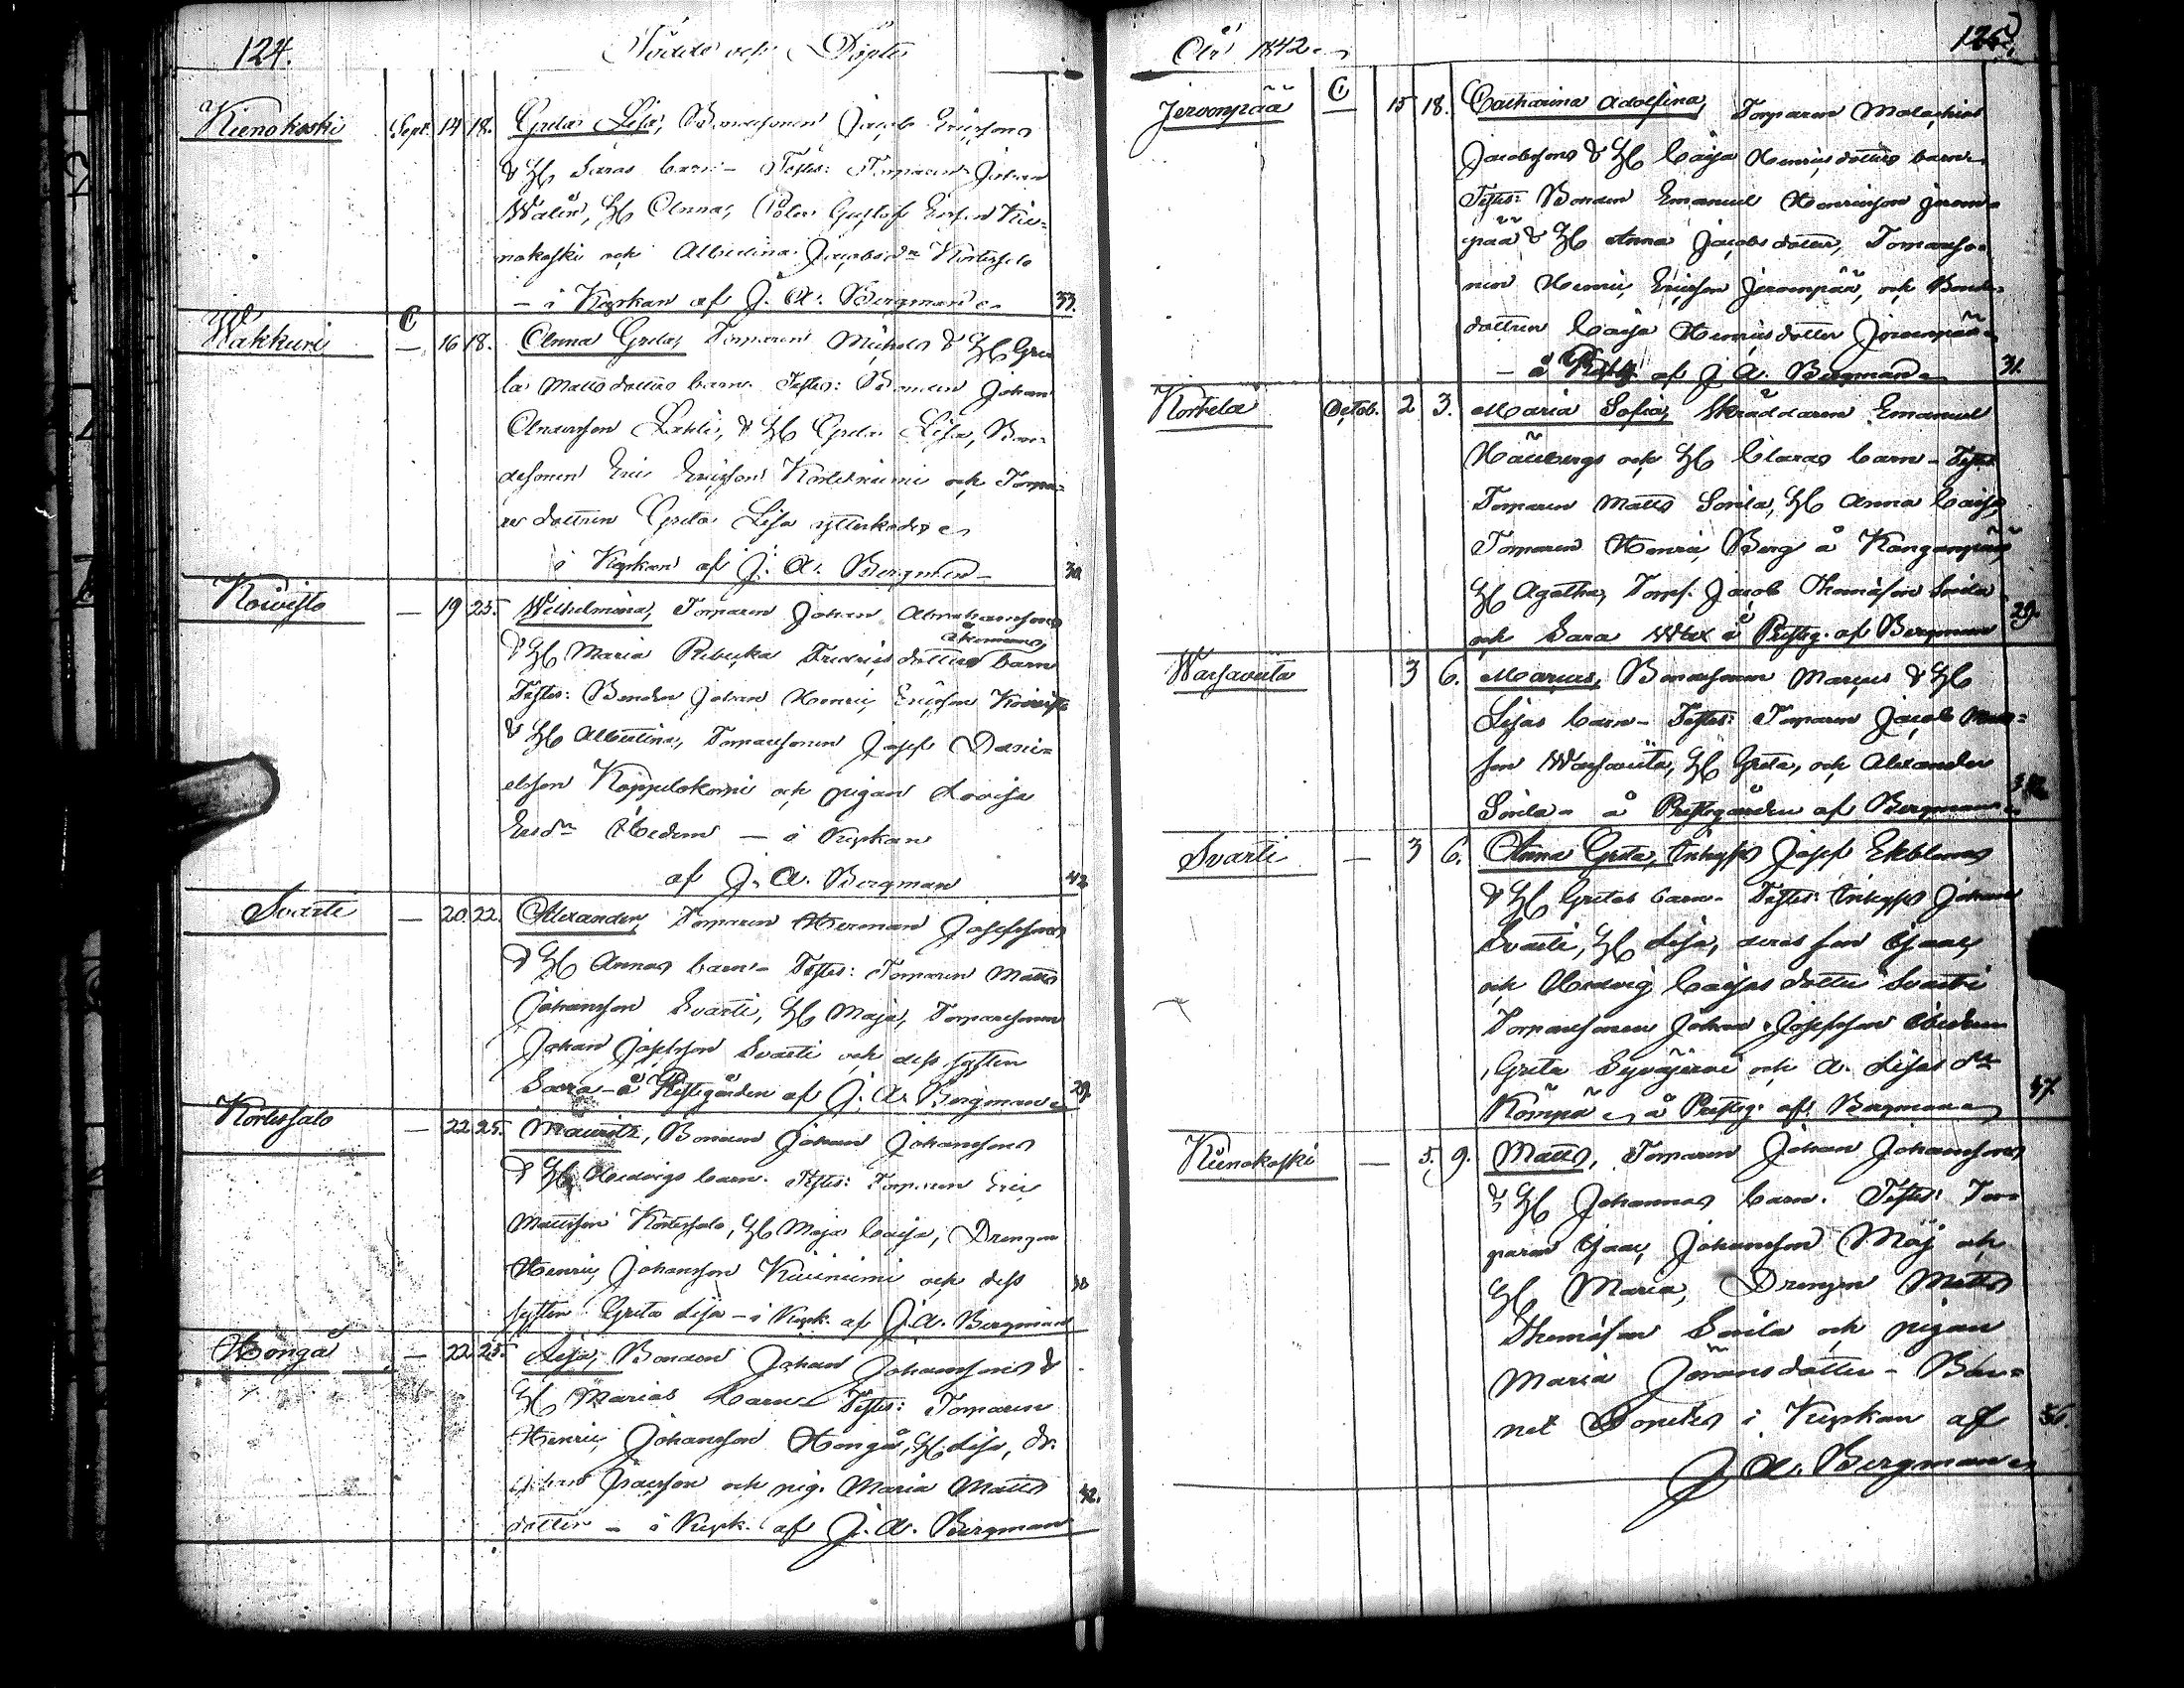 124.
Födde och Döpte
Kienokoski Sept. 14 18. Greta Lisa, Bondesonen Jacob Ericssons
& H Saras barn – Testes: Torparen Johan
Walén, H Anna, Gustaf Kie-
nokoski och Albertina Jacobsdr Kortessalo
– i Kyrkan af J. A. Bergman 33.
Wakkuri – 16 18. Anna Greta, Torparen Michels & H Gre
ta Matts dotters barn. Testes: Bonden Johan
Andersson Lahti, & H Greta Lisa, Bon-
desonen Eric Ericsson Kortekniemi och Torpa-
re dottren Greta Lisa
i Kyrkan af J. A. Bergman – 30
Koivisto – 19 25. Wilhelmina, Torparen Johan Abrahamssons
& H Maria Rebecka Fredricsdotters barn
Testes: Bonden Johan Henric Ericsson Koivisto
& H Albertina, Torparesonen Josef Dani-
elsson Käppilokorpi och pigan Lovisa
Ersdr – i Kyrkan
af J. A. Bergman 42
Svarti – 20. 22. Alexander, Torparen Herman Josefssons
& H Annas barn – Testes: Torparen Matts
Johansson Svarti, H Maja, Torparesonen
Johan Josefsson Svarti och dess systen
Saara – å Prestegården af J. A. Bergman 29.
Kortessalo – 22. 25. Mauritz, Bonden Johan Johanssons
& H Hedvigs barn. Testes: Torparen Eric
Mattsson Kortessalo, H Maja Caisa, Drengen
Henric Johansson Kiiniemi och dess
systen Greta Lisa – i Kyrk. af J. A. Bergman
Hongå – 22. 25. Lisa, Bonden Johan Johanssons &
H Marias barn Testes: Torparen
Henric Johansson Hongå, H Lisa, dr.
Isacsson och pig. Maria Matts
dotter – i Kyrk. af J. A. Bergman 42.
År 1842.
125.
Jervenpää 15 18. Catharina Adolfina, Torparen Malachias
Jacobssons & H Caisa Henrics dotters barn
Testes: Bonden Emanuel Henricsson Jerven-
pää & H Anna Jacobs dotter, Torpareso-
nen Henric Ericsson Jervenpää, och Bonde-
dottren Caisa Henrics dotter Jervenpää
– å Prestg. af J. A. Bergman 31.
Korkela Octob. 2 3. Maria Sofia, Skräddaren Emanuel
och H Claras barn – Testes
Torparen Matts Sorila, H Anna Caisa,
Torparen Henric Berg å Kanganpää,
H Agatha, Torps. Jacob Thomasson Sorila
och Sara å Prestg. af Bergman 29.
Warsavuta 3 6. Marcus, Bondesonen Marcus & H
Lisas barn – Testes: Torparen Jacob
son Warsavuta, H Greta, och Alexander
Sorila – å Prestegården af Bergman
Svarti – 3 6. Anna Greta, Inhyses Josef Ekbloms
& H Gretas barn – Testes: Inhyses Johan
Svarti, H Lisa, deras son Isaac,
och Hedvig Caisas dotter Svarti
Torparesonen Johan Josefsson
Greta Syväjärvi och A. Lisas dr
Kömpä å Prestg. af Bergman 47.
Kienokoski – 5. 9. Matts, Torparen Johan Johanssons
& H Johannas barn. Testes: Tor-
paren Isaac Johansson Mäj och
H Maria, Drengen Matts
Thomasson Sorila och pigan
Maria Jörans dotter – Bar-
net Döptes i Kyrkan af 36.
J. A. Bergman